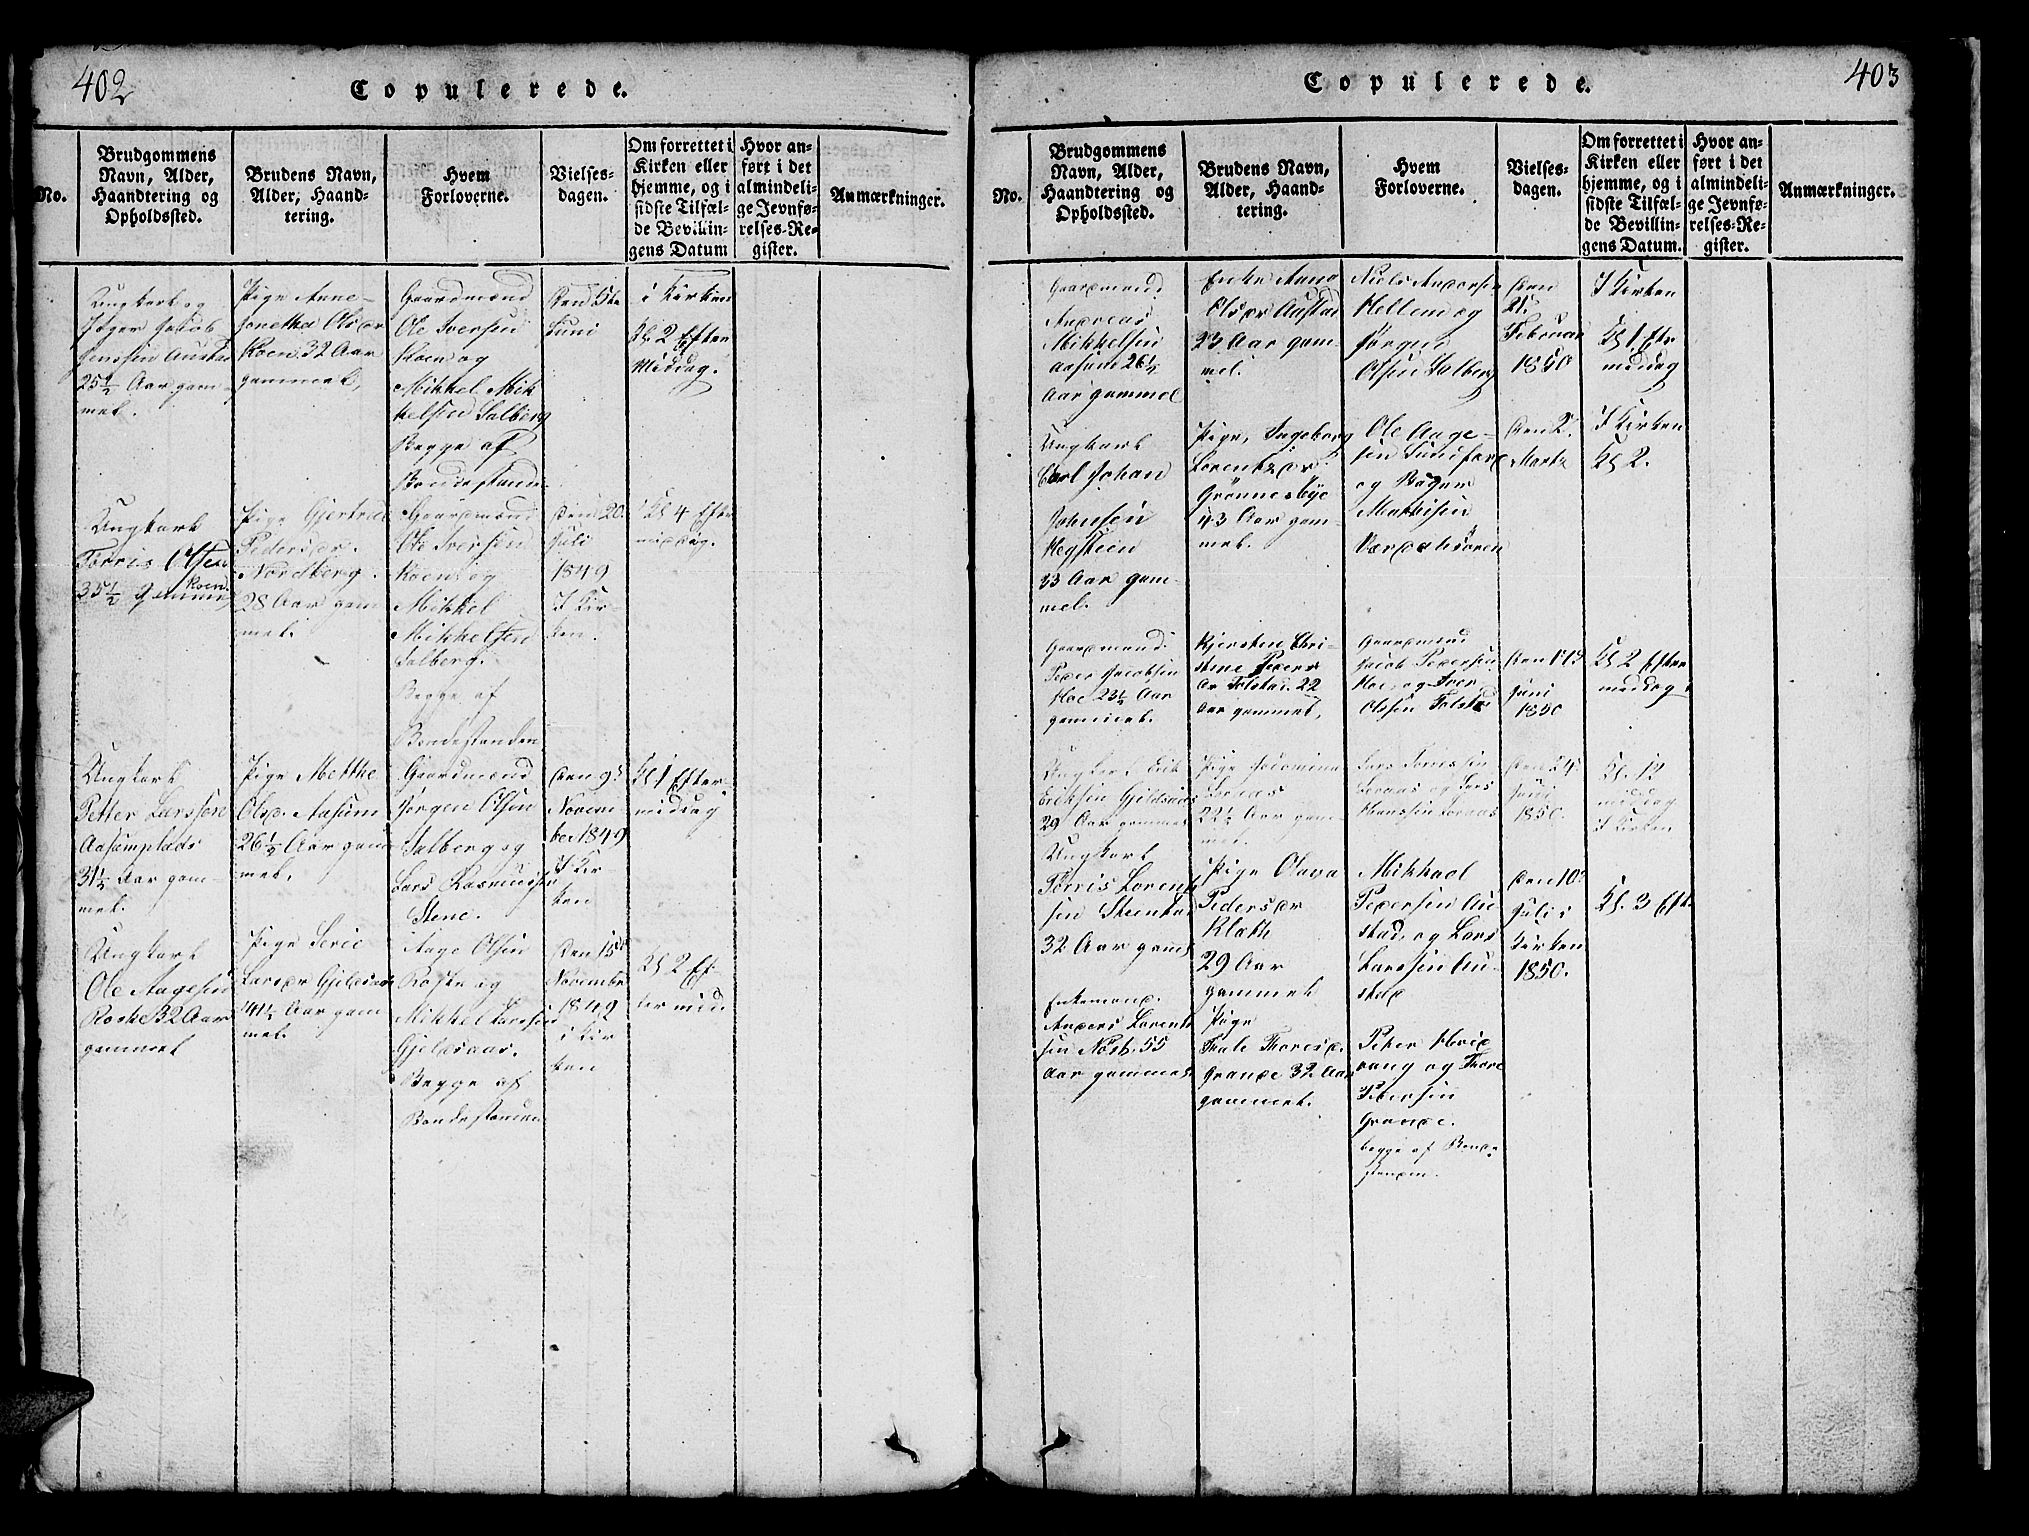 402
Copulerede.
No.
Brudgommens
Navn, Alder,
Haandtering og
Opholdssted.
Brudens Navn,
Alder, Haand-
tering.
Hvem
Forloverne.
Vielses-
dagen.
Om forrettet i
Kirken eller
hjemme, og i
sidste Tilfæl-
de Bevillin-
gens Datum
Hvor an-
ført i det
almindeli-
ge Jevnfø-
relses-Re-
gister.
Anmærkninger.
Ungkarl og
Jakob
Jenssen Austad
25½ Aar gam-
mel.
Pige Anne-
Olsdr
Roen 32 Aar
gammel,
Gaardmænd
Ole Iversen
Roen og
Mikkel Mik
kelsen Salberg
Begge af
Bondestand.
Den 5te
Juni
i Kirken
Kl 2 Efter
Middag.
Ungkarl
Torris Olsen
Roen
35½ gammel
Pige Gjertrud
Pedersdr.
Nordberg.
28 Aar gam
mel.
Gaardmænd
Ole Iversen
Roen og
Mikkel
Mikkelsen
Salberg.
Begge af
Bondestanden
Den 20.
Juli
1849
I Kir-
ken.
Kl 4 Efter
middag.
Ungkarl
Petter Larssen
Aasumplads
31½ Aar gam-
mel.
Pige Mette
Olsd. Aasum
26½ Aar gam
mel.
Gaardmænd
Jørgen Olsen
Salberg og
Lars Rasmussen
Stene.
Den 9.
Novem
ber 1849
I Kir
ken
Kl 1 Efter-
middag
Ungkarl
Ole Aagesen
Roske 32 Aar
gammel
Pige Serie
Larsdr Gjeldsaas
41½ Aar gam
mel.
Aage Olsen
Roske og
Mikkel Larssen
Gjeldsaas.
Begge af
Bondestanden
Den 15de
Novembr
1849
i Kir
ken
Kl 2 Ef-
ter midd
403
Copulerede.
No.
Brudgommens
Navn, Alder,
Haandtering og
Opholdssted.
Brudens Navn,
Alder, Haand-
tering.
Hvem
Forloverne.
Vielses-
dagen.
Om forrettet i
Kirken eller
hjemme, og i
sidste Tilfæl-
de Bevillin-
gens Datum.
Hvor an-
ført i det
almindeli-
ge Jevnfø-
relses-Re-
gister.
Anmærkninger.
Gaardmand
Andreas
Mikkelsen
Aasum 26½
Aar gammel
Enke Anna
Olsdr Austad
23 Aar gam-
mel.
Niels Andersen
Hellem og
Jørgen
Olsen Salberg
Den
21.
Februar
1850
I Kirken
Kl 1 Eftr
middag
Ungkarl
Carl Johan
Johnsen
Hegstein
33 Aar gam-
mel.
Pige, Ingeborg
Lorentzdr
Grønnesbye
43 Aar gam-
mel.
Ole Aage-
sen Sundfær
og Bager
Mathisen
Værdalsøren
Den 2.
Marts
I Kirken
Kl 2.
Gaardmand
Peder Jacobsen
Hoe 23½ Aar
gammel.
Kjersten Chri-
stine Peders
dr Tolstad. 22
Aar gammel,
Gaardmænd
Jacob Pedersen
Hoe, og Iver
Olssen Tolstad
Juni
1850
Kl 2 Efter
middag
Ungkarl Erik
Eriksen Gjeldsaas
29 Aar gammel
Pige
22½ Aar gam-
mel.
Den 24.
Juni
1850.
Kl. 12
middag
I Kirken
Ungkarl
Torris Lorent
sen
32 Aar gamel
Pige Olava
Pedersdr
Kleth
29 Aar
gammel
Mikkael
Pedersen Au
stad, og Lars
Larssen Au-
stad
Den 10.
Juli i
Kirken
1850.
Kl. 3 Eft.
Enkemand.
Anders Lorent
sen 55
Aar gammel
Pige
Thale Thoresd.
Grande 32 Aar
gammel.
Peter Hvid
vang og Thore
Petersen
Grande.
begge af Bonde
standen.